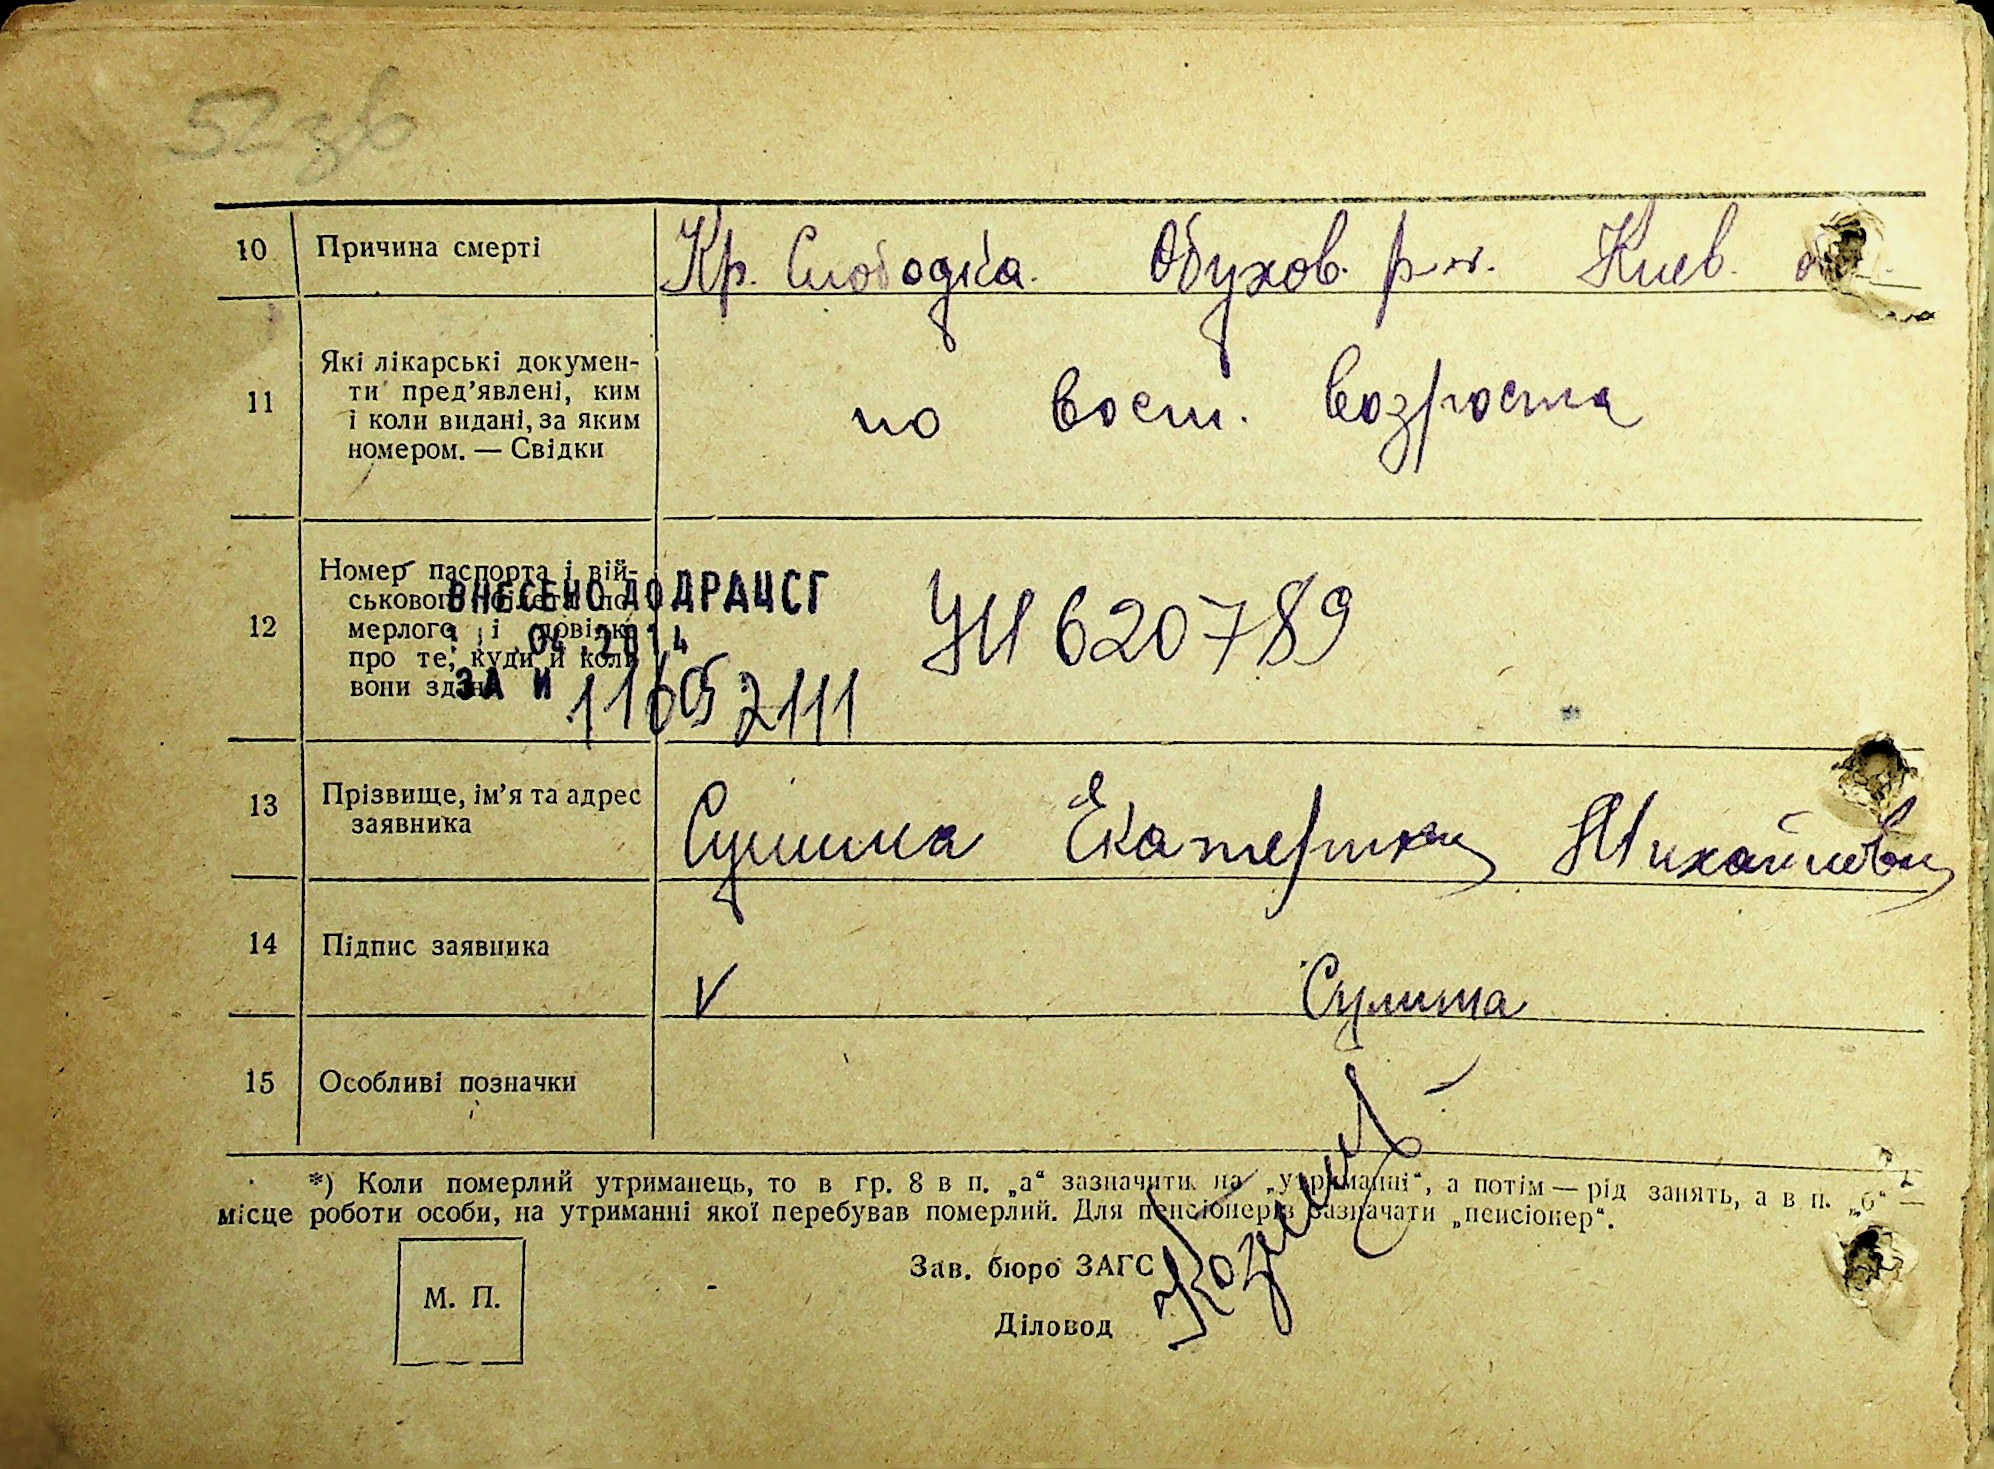 52зв
10 Причина смерті Кр. Слободка. Обухов. р-н. Киев.
11 Які лікарські докумен-
ти пред’явлені, ким
і коли видані, за яким
номером. — Свідки
по возраста
12 Номер паспорта і вій-
ськового по-
мерлого і
про те, куди й коли
вони
ВНЕСЕНО ДО ДРАЦСГ
04 2014
ЗА №
2111
УИ 620789
13 Прізвище, ім’я та адрес
заявника
Сулима Екатерина Михайловна
14 Підпис заявника V Сулима
15 Особливі позначки
*) Коли померлий утриманець, то в гр. 8 в п. „а“ зазначити на „утриманні“, а потім — рід занять, а в п. „б“ —
місце роботи особи, на утриманні якої перебував померлий. Для пенсіонерів зазначати „пенсіонер“.
М. П.
Зав. бюро ЗАГС
Діловод